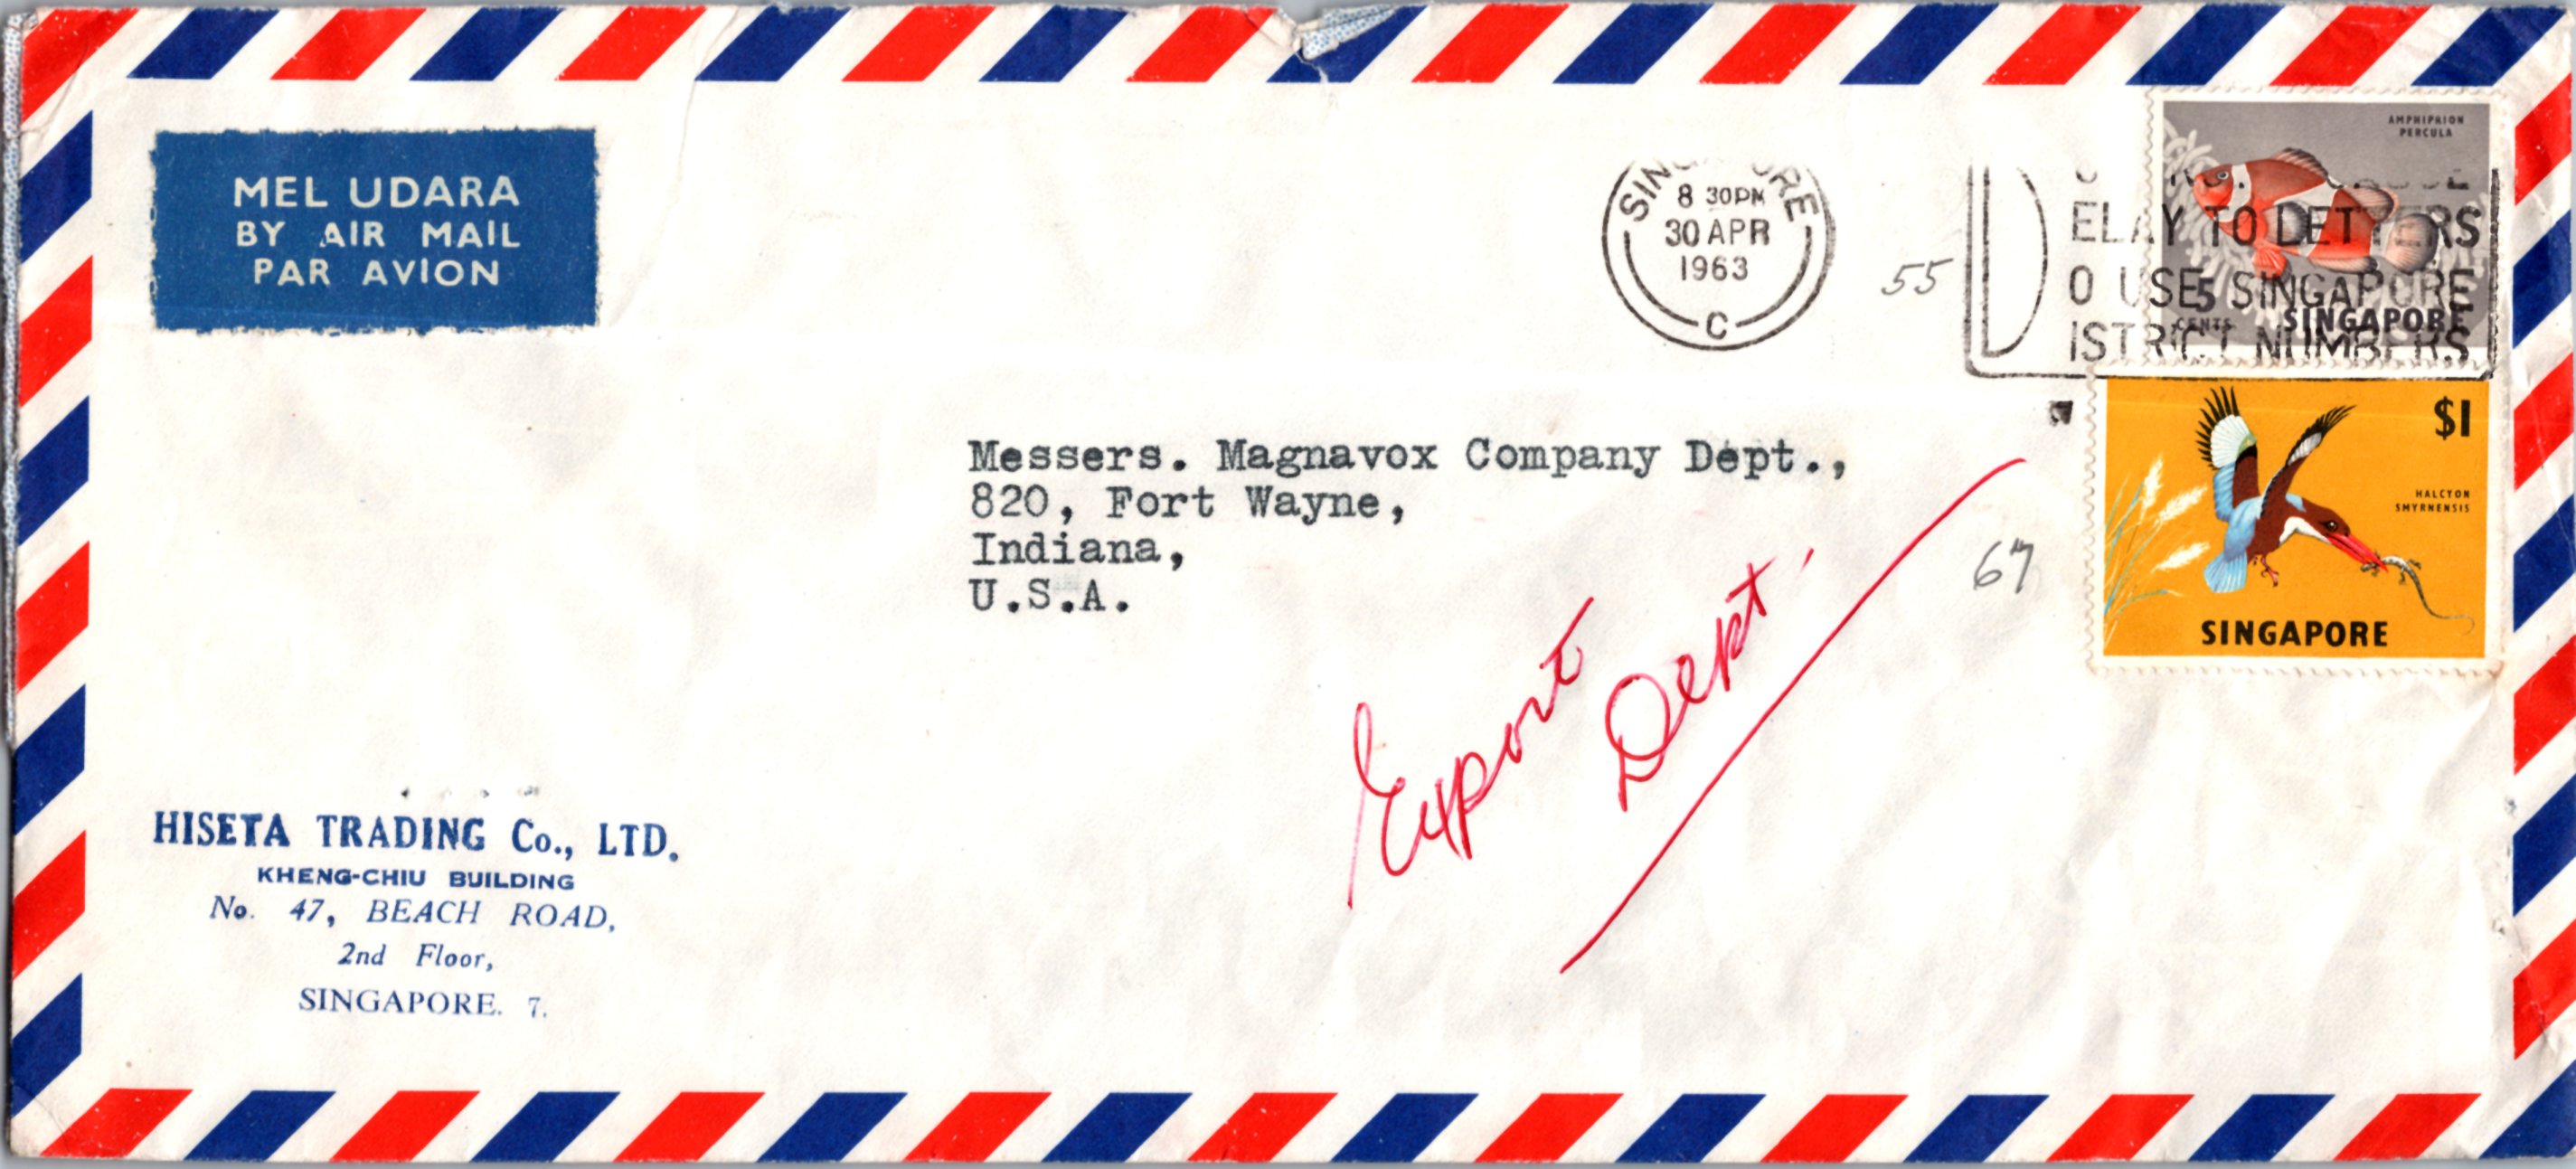 MEL UDARA
BY AIR MAIL
PAR AVION
SINGAPORE
8 30PM
30 APR
1963
C
55
D
ELAY TO LETTERS
O USE SINGAPORE
ISTRICT NUMBERS
AMPHIPRION
PERCULA
5
CENTS
SINGAPORE
$1
HALCYON
SMYRNENSIS
SINGAPORE
67
Messers. Magnavox Company Dept.,
820, Fort Wayne,
Indiana,
U.S.A.
Export
Dept.
HISETA TRADING Co., LTD.
KHENG-CHIU BUILDING
No. 47, BEACH ROAD,
2nd Floor,
SINGAPORE. 7.